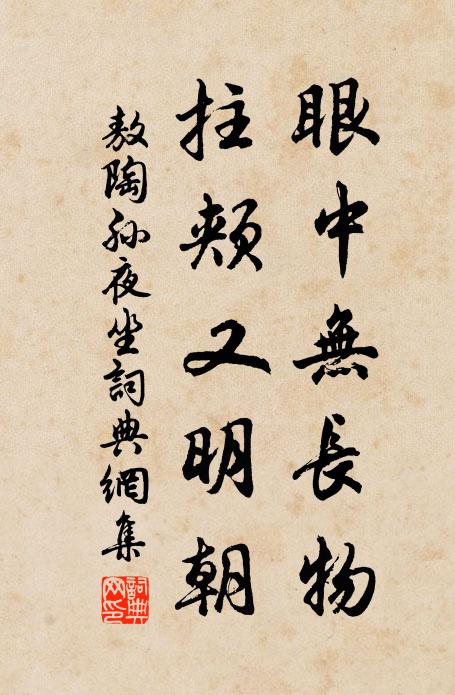 眼中無長物
拄頰又明朝
敖陶孫夜坐詞典網集
詞典網印